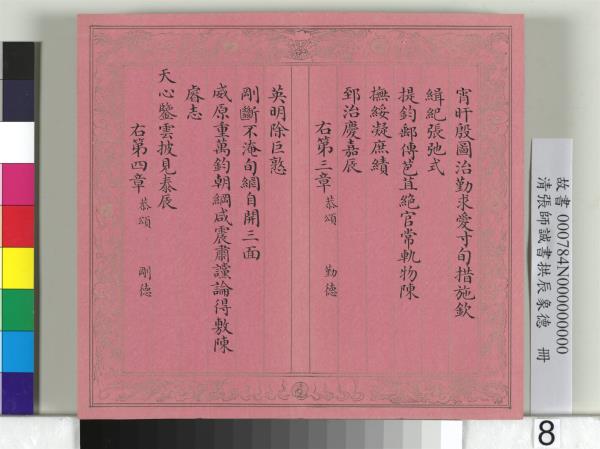 宵旰殷圖治勤求愛寸旬措施欽
緝紀張弛式
提鈞郵傳苞苴絕官常軌物陳
撫綏凝庶績
郅治慶嘉辰
右第三章 恭頌 勤德
英明除巨憝
剛斷不淹旬網自開三面
威原重萬鈞朝綱咸震肅讜論得敷陳
睿志
天心鑒雲披見泰辰
右第四章 恭頌 剛德
故書 000784N000000000
清張師誠書拱辰象德 冊
8